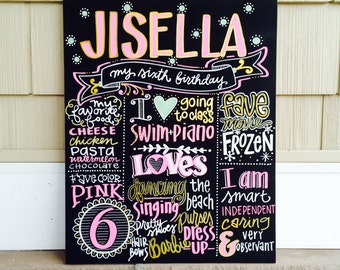 JISELLA
my sixth birthday
my
favorite
foods
CHEESE
chicken
PASTA
watermelon
CHOCOLATE
fave color
PINK
6
I going
to class
SWIM+PIANO
LOVES
singing
the
beach
pretty
shoes
purses
DRESS
UP
HAIR
BOWS
Barbie
FAVE
movie
FROZEN
I am
smart
INDEPENDENT
caring
& very
observant